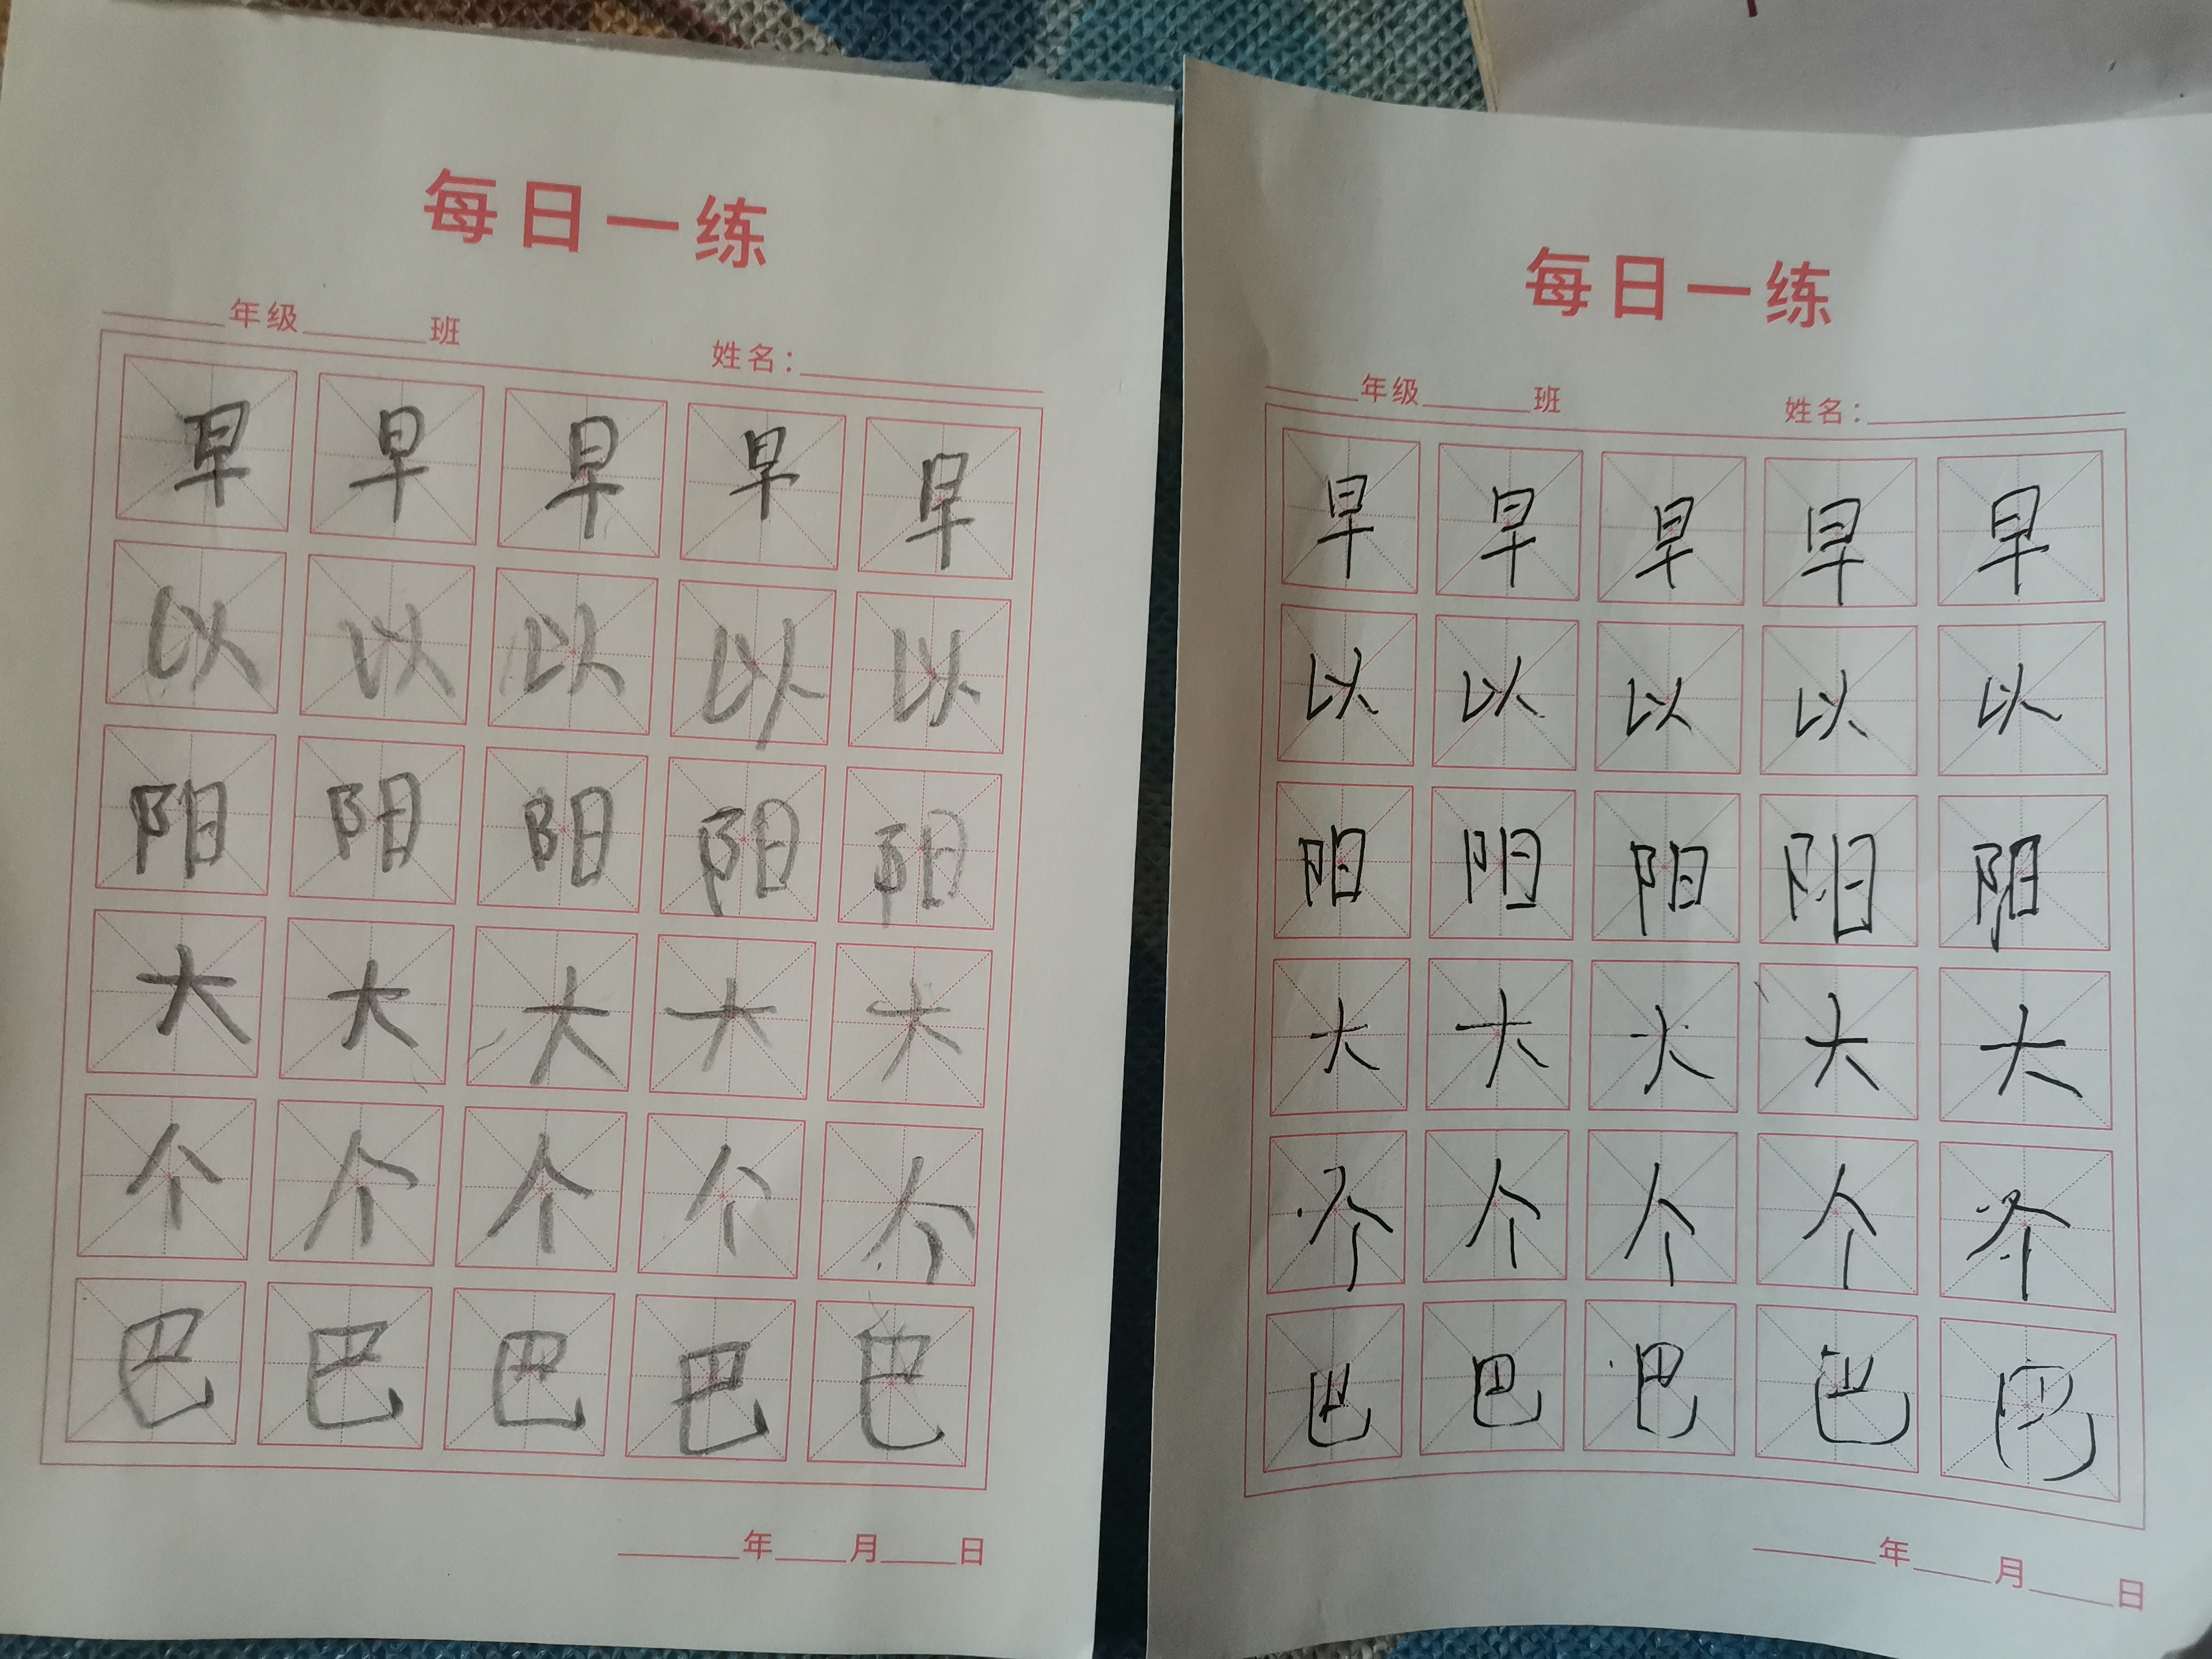 每日一练
年级 班 姓名：
早 早 早 早 早
以 以 以 以 以
阳 阳 阳 阳 阳
大 大 大 大 大
个 个 个 个 个
巴 巴 巴 巴 巴
年 月 日
每日一练
年级 班 姓名：
早 早 早 早 早
以 以 以 以 以
阳 阳 阳 阳 阳
大 大 大 大 大
个 个 个 个 个
巴 巴 巴 巴 巴
年 月 日